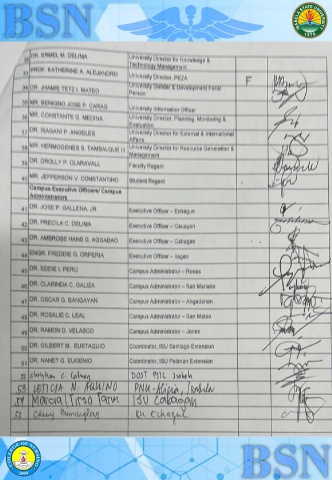 BSN
32 DR. ERMEL M. DELIMA University Director for Knowledge & Technology Management
33 PROF. KATHERINE A. ALEJANDRO University Director, PEZA F
34 DR. JHAMIE TETZ I. MATEO University Gender & Development Focal Person
35 MR. BENIGNO JOSE P. CARAG University Information Officer
36 MR. CONSTANTE G. MEDINA University Director, Planning, Monitoring & Evaluation
37 DR. ISAGANI P. ANGELES University Director for External & International Affairs
38 MR. HERMOGENES B. TAMBALQUE III University Director for Resource Generation & Management
39 DR. OROLLY P. CLARAVALL Faculty Regent
40 MR. JEFFERSON V. CONSTANTINO Student Regent
Campus Executive Officers/ Campus Administrators
41 DR. JOSE P. GALLENA, JR. Executive Officer – Echague
42 DR. PRECILA C. DELIMA Executive Officer – Cauayan
43 DR. AMBROSE HANS G. AGGABAO Executive Officer – Cabagan
44 ENGR. FREDDIE O. ORPERIA Executive Officer – Ilagan
45 DR. EDDIE I. PERU Campus Administrator – Roxas
46 DR. CLARINDA C. GALIZA Campus Administrator – San Mariano
47 DR. OSCAR G. BANGAYAN Campus Administrator – Angadanan
48 DR. ROSALIE C. LEAL Campus Administrator – San Mateo
49 DR. RAMON D. VELASCO Campus Administrator – Jones
50 DR. GILBERT M. EUSTAQUIO Coordinator, ISU Santiago Extension
51 DR. NANET G. EUGENIO Coordinator, ISU Palanan Extension
52 DOST PSTC Isabela
53 LETICIA N. AQUINO PNU-Alicia, Isabela
54 ISU Cabagan
55 Echague
BSN